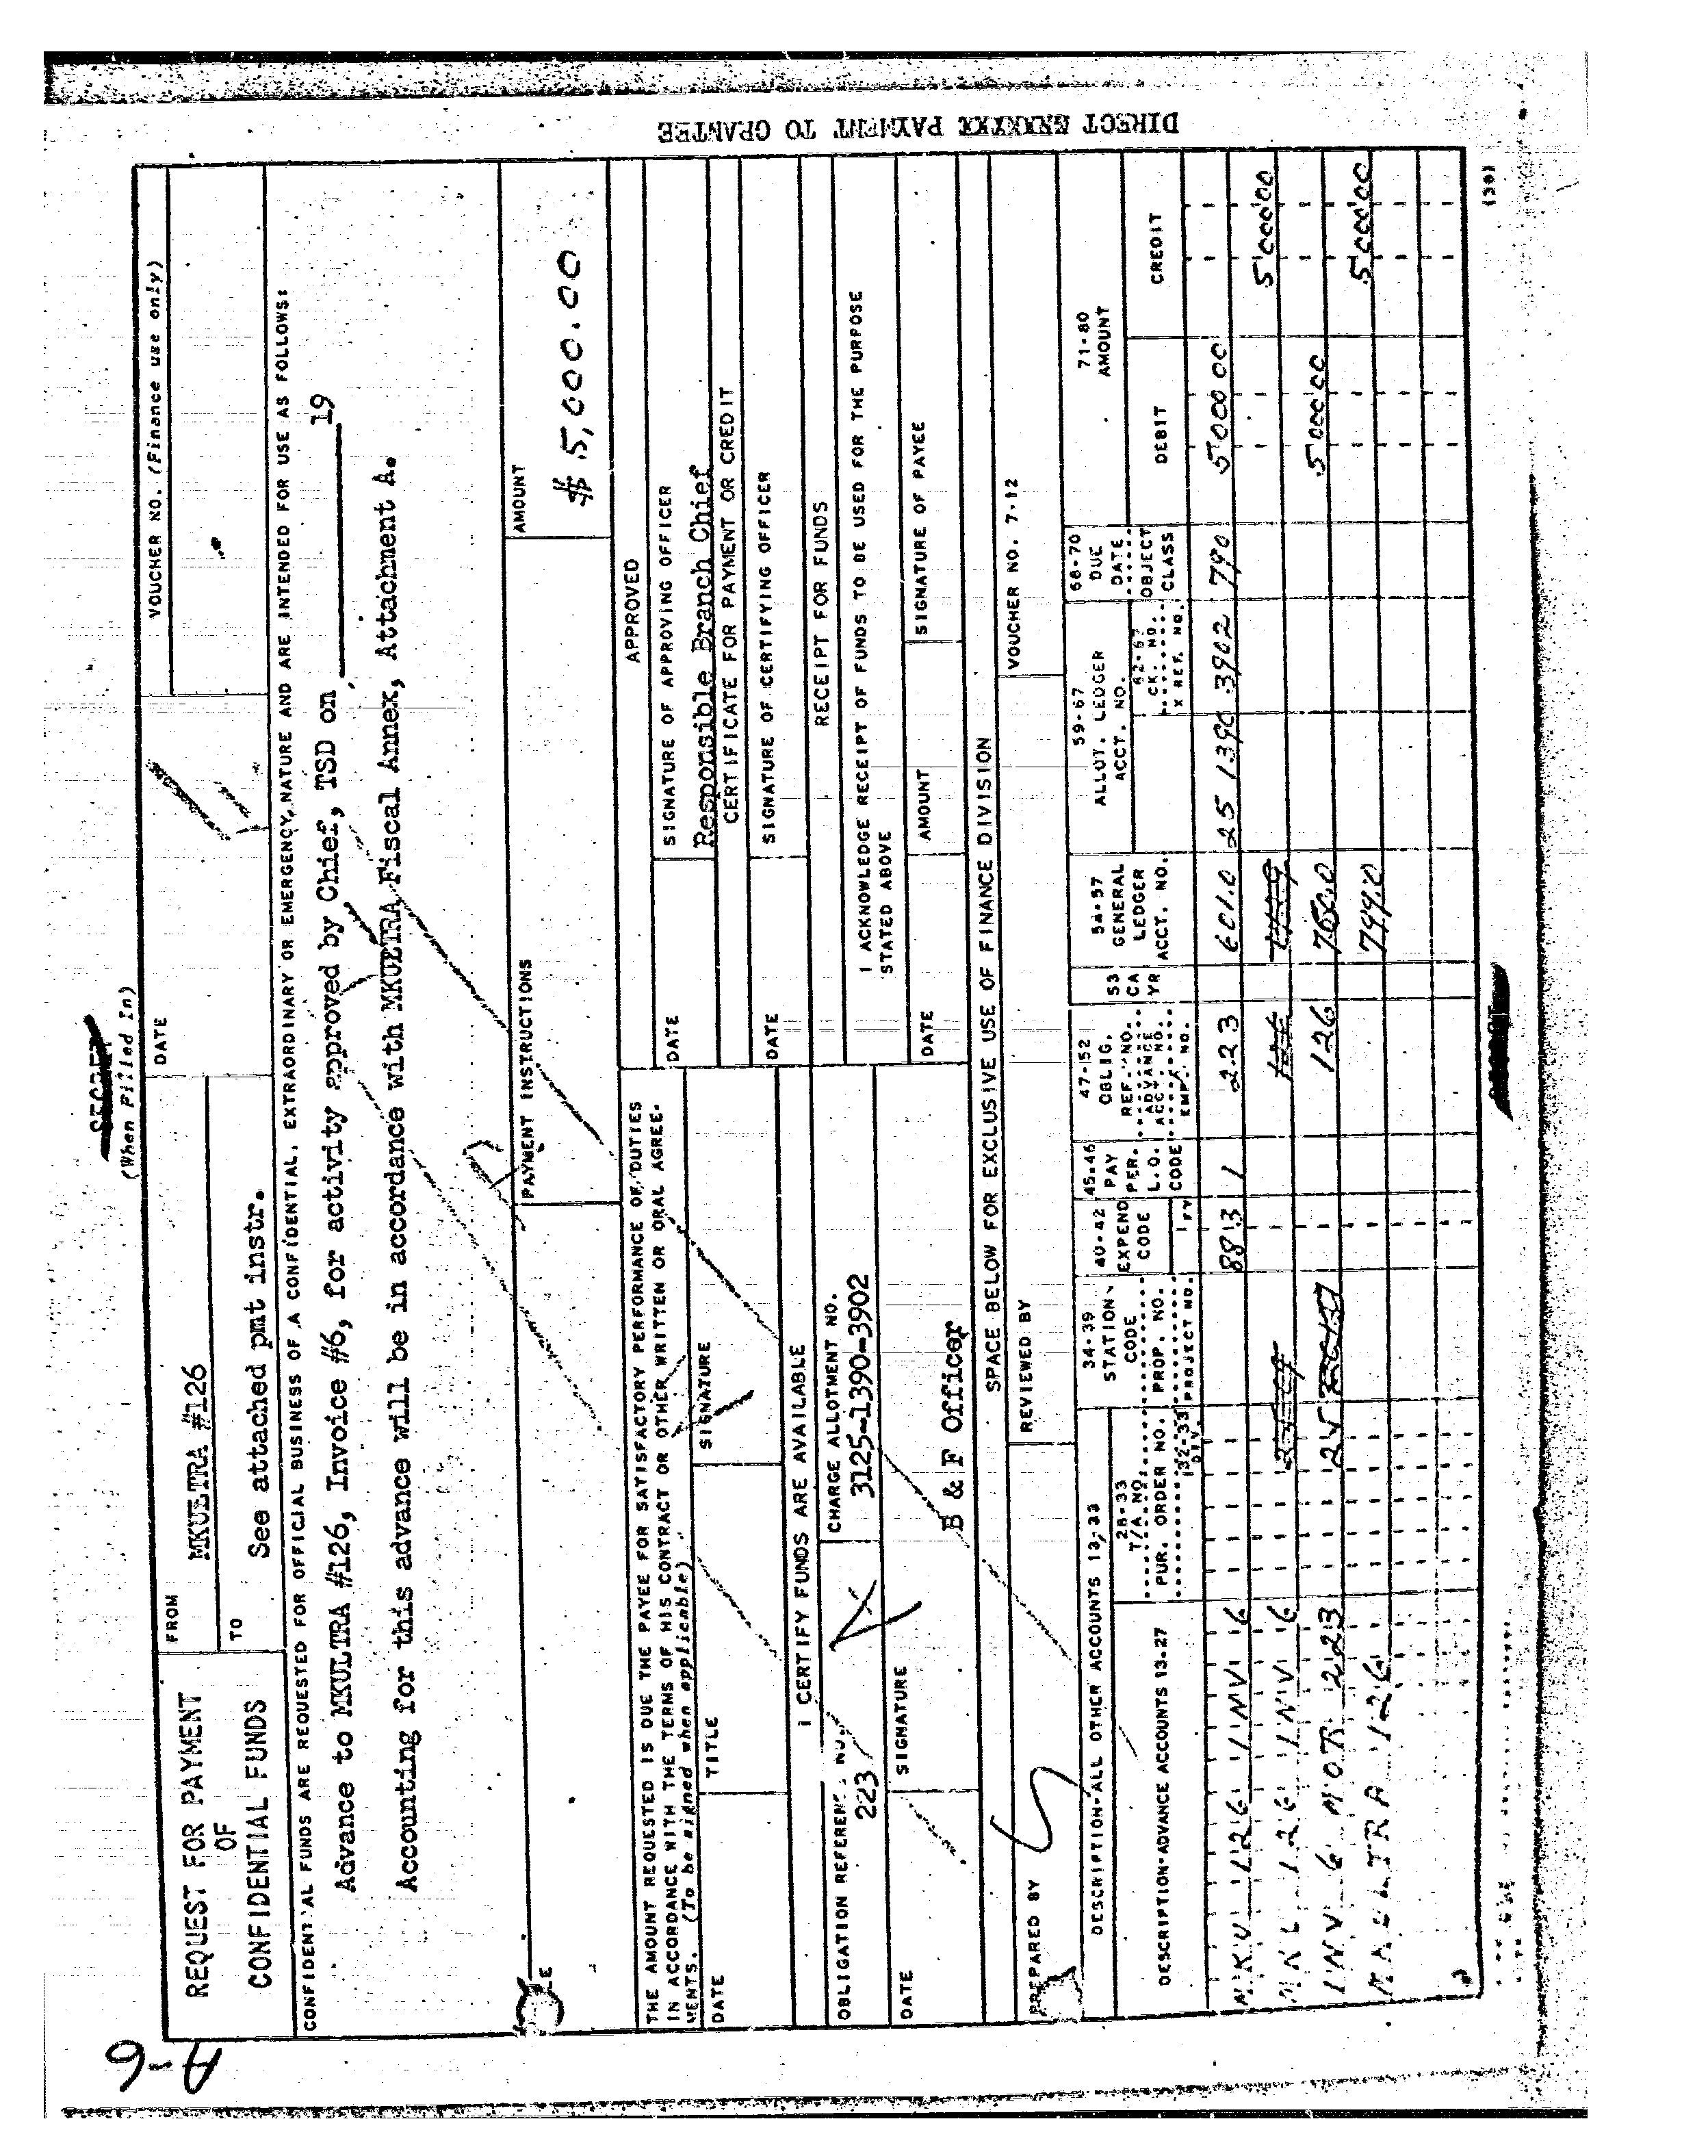 A-6
SECRET
(When Filled In)
REQUEST FOR PAYMENT
OF
CONFIDENTIAL FUNDS
FROM
MKULTRA #126
TO
See attached pmt instr.
DATE
VOUCHER NO. (Finance use only)
CONFIDENTIAL FUNDS ARE REQUESTED FOR OFFICIAL BUSINESS OF A CONFIDENTIAL, EXTRAORDINARY OR EMERGENCY NATURE AND ARE INTENDED FOR USE AS FOLLOWS:
Advance to MKULTRA #126, Invoice #6, for activity approved by Chief, TSD on 19
Accounting for this advance will be in accordance with MKULTRA Fiscal Annex, Attachment A.
PAYMENT INSTRUCTIONS
AMOUNT
$ 5,000.00
THE AMOUNT REQUESTED IS DUE THE PAYEE FOR SATISFACTORY PERFORMANCE OF DUTIES
IN ACCORDANCE WITH THE TERMS OF HIS CONTRACT OR OTHER WRITTEN OR ORAL AGREE-
MENTS. (To be signed when applicable)
DATE
TITLE
SIGNATURE
APPROVED
DATE
SIGNATURE OF APPROVING OFFICER
Responsible Branch Chief
CERTIFICATE FOR PAYMENT OR CREDIT
DATE
SIGNATURE OF CERTIFYING OFFICER
I CERTIFY FUNDS ARE AVAILABLE
OBLIGATION REFERENCE NO.
223
CHARGE ALLOTMENT NO.
3125-1390-3902
DATE
SIGNATURE
B & F Officer
RECEIPT FOR FUNDS
I ACKNOWLEDGE RECEIPT OF FUNDS TO BE USED FOR THE PURPOSE
STATED ABOVE
DATE
AMOUNT
SIGNATURE OF PAYEE
SPACE BELOW FOR EXCLUSIVE USE OF FINANCE DIVISION
PREPARED BY
REVIEWED BY
VOUCHER NO. 7-12
DESCRIPTION-ALL OTHER ACCOUNTS 13-33
DESCRIPTION-ADVANCE ACCOUNTS 13-27
28-33
T/A NO.
PUR. ORDER NO.
32-33
DIV.
34-39
STATION
CODE
PROP. NO.
PROJECT NO.
40-42
EXPEND
CODE
FY
45-46
PAY
PER.
L.O.
CODE
47-52
OBLIG.
REF. NO.
ADVANCE
ACCT. NO.
EMP. NO.
53
CA
YR
54-57
GENERAL
LEDGER
ACCT. NO.
59-67
ALLOT. LEDGER
ACCT. NO.
62-67
CK. NO.
X REF. NO.
68-70
DUE
DATE
OBJECT
CLASS
71-80
AMOUNT
DEBIT
CREDIT
MKU 126 INV 6 883 1 223 601.0 25 1390 3902 790 5000 00
126 INV 6 5000 00
INV 6 MOR 223 25 126 5000 00
MKULTRA 126 5000 00
(30)
DIRECT PAYMENT TO GRANTEE